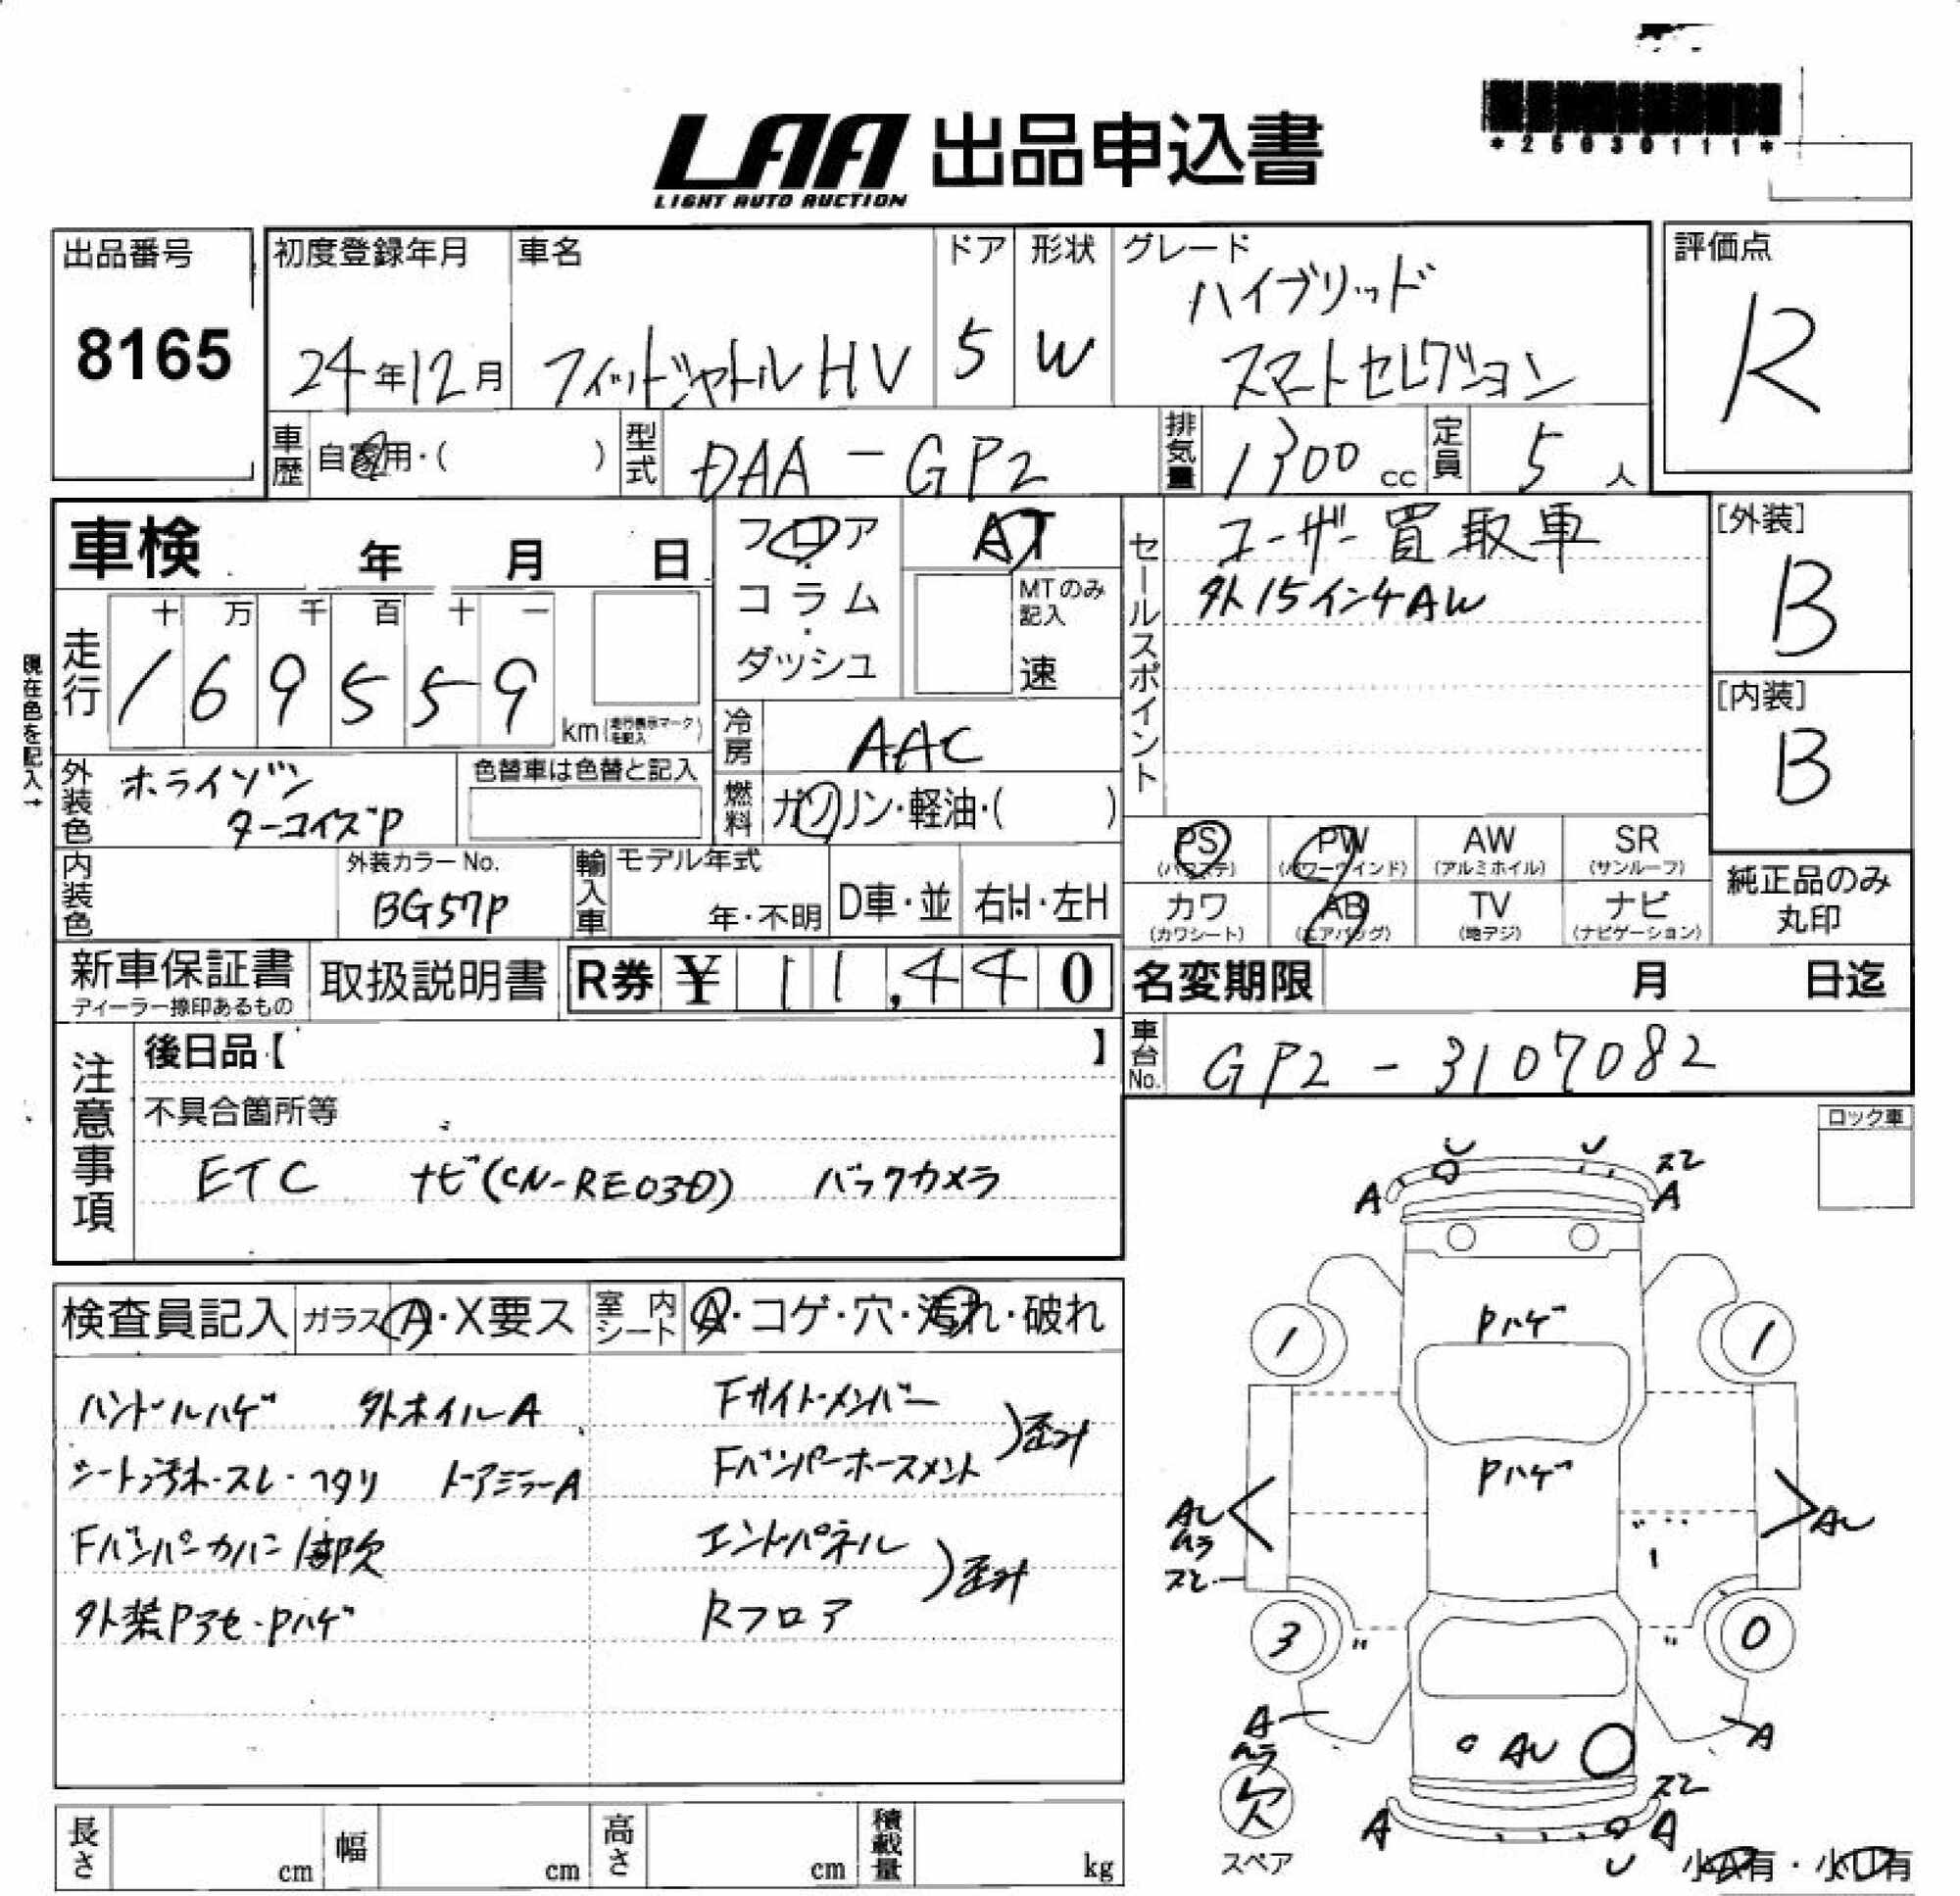 *25030111*
LAA 出品申込書
LIGHT AUTO AUCTION
出品番号
8165
初度登録年月
24年12月
車名
フィットシャトルHV
ドア
5
形状
W
グレード
ハイブリッド
スマートセレクション
評価点
R
車歴
自家用・( )
型式
DAA-GP2
排気量
1300 cc
定員
5 人
車検 年 月 日
フロア
コラム
ダッシュ
AT
MTのみ
記入
速
セールスポイント
ユーザー買取車
外15インチAW
[外装]
B
[内装]
B
現在色を記入→
走行
十 万 千 百 十 一
169559
km(走行表示マークを記入)
冷房
AAC
外装色
ホライゾン
ターコイズP
色替車は色替と記入
燃料
ガソリン・軽油・( )
PS
(パワステ)
PW
(パワーウインド)
AW
(アルミホイル)
SR
(サンルーフ)
カワ
(カワシート)
AB
(エアバッグ)
TV
(地デジ)
ナビ
(ナビゲーション)
純正品のみ
丸印
内装色
外装カラーNo.
BG57P
輸入車
モデル年式
年・不明
D車・並
右H・左H
新車保証書
ディーラー捺印あるもの
取扱説明書
R券 ¥ 11,440
名変期限 月 日迄
車台No.
GP2-3107082
注意事項
後日品【 】
不具合箇所等
ETC ナビ(CN-RE03D) バックカメラ
ロック車
検査員記入
ガラス A・X要ス
室内シート
A・コゲ・穴・汚れ・破れ
ハンドルハゲ 外ホイルA
シート汚れ・スレ・ヘタリ ドアミラーA
Fバンパーカバー1部欠
外装Pアセ・Pハゲ
Fサイドメンバー
Fバンパーホースメント
)歪み
エンドパネル
Rフロア
)歪み
U U スレ
A A
Pハゲ
1 1
Pハゲ
AU
ムラ
スレ
AU
3 0
A
ムラ
AU
A
欠
スペア
スレ
A A
U
小A有・小U有
長さ cm
幅 cm
高さ cm
積載量 kg